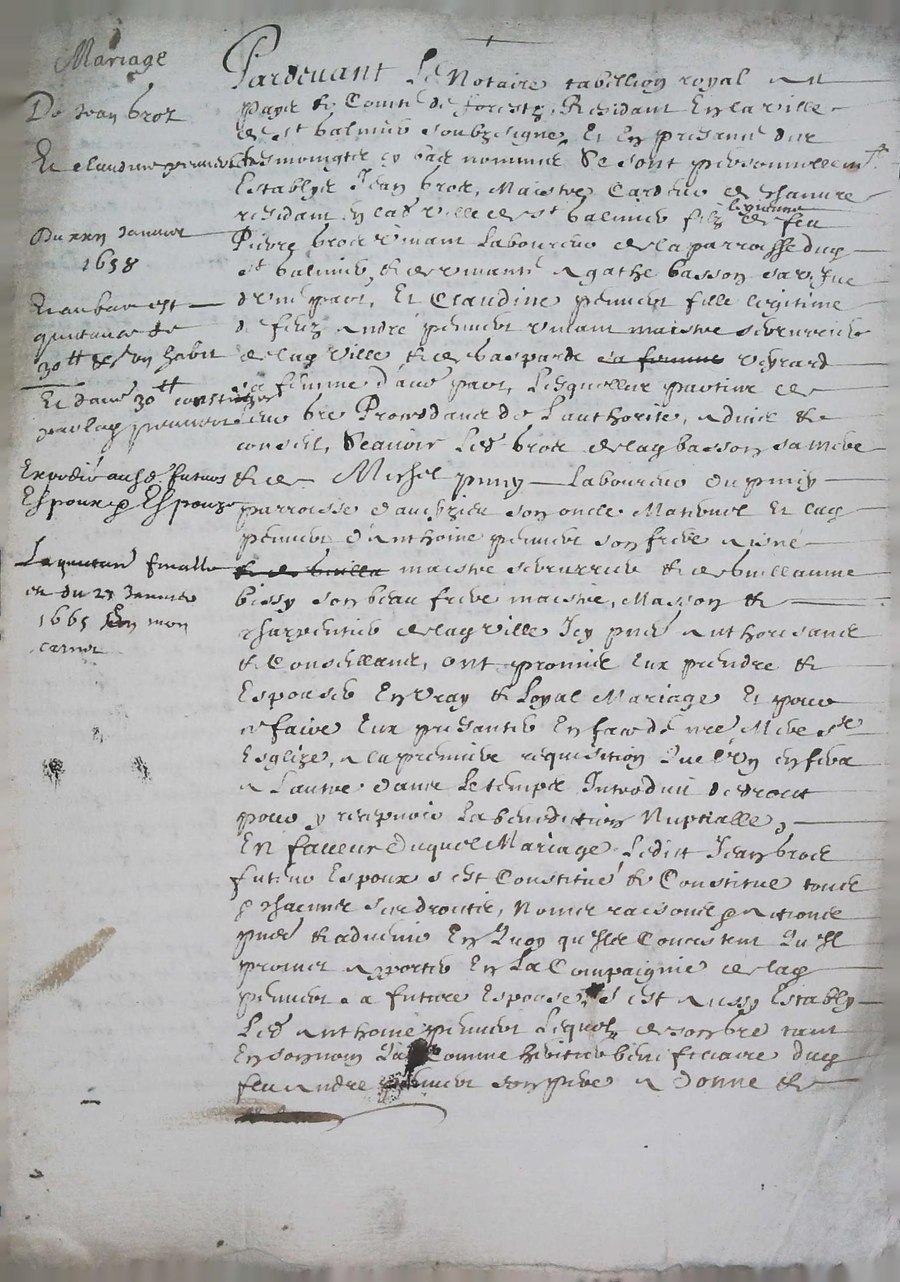 Mariage
De Jean brot
Et claudine
Du xxij Janvier
1658
Et au bas est
quittance de
30tt & un habit
Et dautre 30tt constituez
par lad
Expedié ausd. futurs
Espoux & Espouze
La quittance finalle
est du 25 Janvier
1665 En mon
carnet
Pardevant Le Notaire tabellion royal au
Pays & Comté de forestz, Residant En la ville
de st balmier soubzsigne Et En presance des
tesmoingts cy bas nommes Se sont personnellemt
Establys Jean brot, Maistre Cardeur de chanvre
residant En lad ville de st balmier filz legitime de feu
Pierre brot vivant Laboureur de la parroisse dud
st balmier, & de vivante Agathe basson sa vefve
d'une part, Et Claudine fille legitime
de feuz André vivant maistre serrurier
de lad ville & de gasparde sa femme
sa femme d'autre part, Lesquelles parties de
leur gre Procedant de L'authorite, advis &
conseil, Scavoir Led brot de lad basson sa mere
& de Michel puny Laboureur du puiy
parroisse d'aubzieu son oncle Maternel Et lad
d'Anthoine son frere aisné
maistre serrurier & de guillaume
bissy son beau frere maistre, Masson &
charpentier de lad ville Icy pnts Authorisants
& Conseillants, ont promis Eux prendre &
Espouser En vray & Loyal Mariage Et pour
ce faire Eux presanter En face de nre Mere ste
Esglize, a la premiere requisition Que l'un En fera
a L'autre dans Le temps Introduit de droit
pour y recepvoir La benediction Nuptialle,
En faveur Duquel Mariage Ledict Jean brot
futur Espoux s'est Constitué & Constitue tous
& chacuns ses droitz, Noms raisons & actions
pnts & advenir En Quoy qu'Ils Consistent Qu'Il
promet apporter En La Compaignie de lad
sa future Espouse, s'est aussy Estably
Led Anthoine Lequel de son gre tant
En son nom Que Comme heritier beneficiaire dud
feu Andre son pere a Donne &